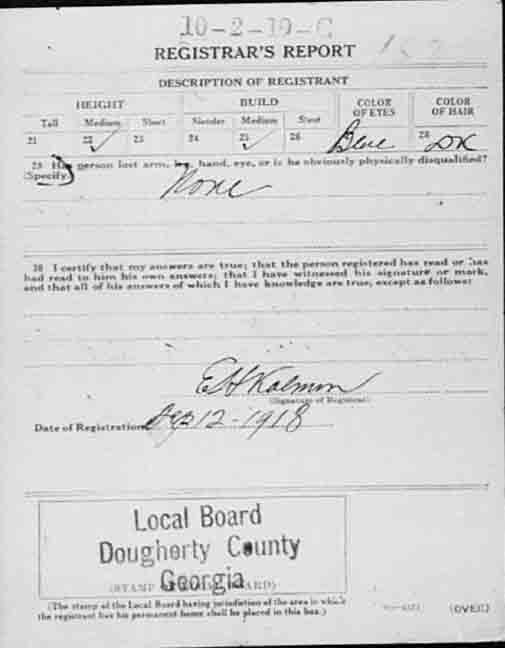 10-2-19-C
REGISTRAR'S REPORT
DESCRIPTION OF REGISTRANT
HEIGHT BUILD COLOR OF EYES COLOR OF HAIR
Tall Medium Short Slender Medium Stout
21 22 ✓ 23 24 25 ✓ 26 Blue 28 DK
29 Has person lost arm, leg, hand, eye, or is he obviously physically disqualified?
(Specify.)
None
30 I certify that my answers are true; that the person registered has read or has
had read to him his own answers; that I have witnessed his signature or mark,
and that all of his answers of which I have knowledge are true, except as follows:
E H Kalmon
(Signature of Registrar)
Date of Registration Sep 12 - 1918
Local Board
Dougherty County
Georgia
(STAMP BOARD)
(The stamp of the Local Board having jurisdiction of the area in which
the registrant has his permanent home shall be placed in this box.)
(OVER)